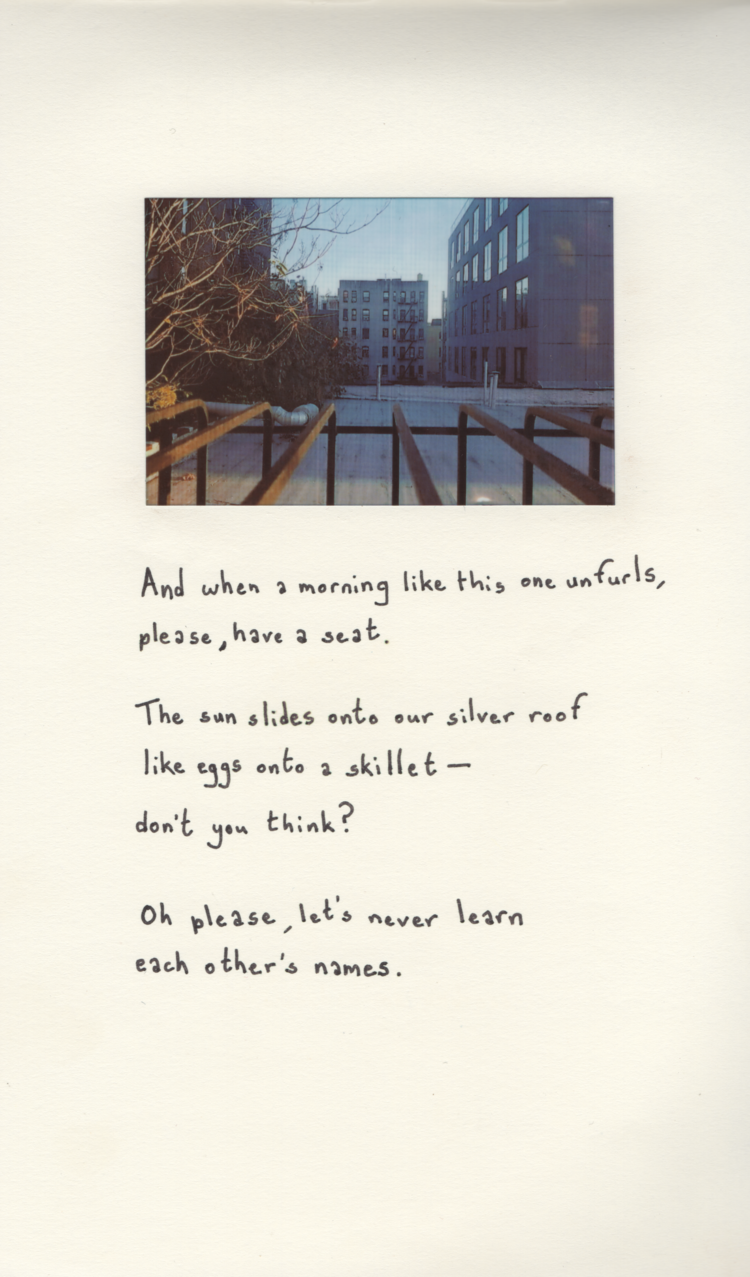 And when a morning like this one unfurls,
please, have a seat.
The sun slides onto our silver roof
like eggs onto a skillet —
don't you think?
Oh please, let's never learn
each other's names.